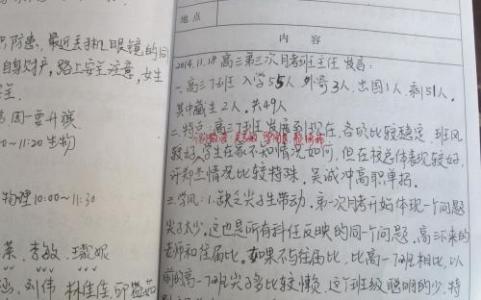 识,防患,最近丢手机,眼镜的同
自身财产,路上安全注意,女生
周一要升旗
0~11:20 生物
物理10:00~11:30
李敏
刘伟 林佳佳
地点
内容
2014.11.18 高三第三次月考班主任 发言:
一.高三7班 入学55人 外寄3人,出国1人,剩51人,
其中藏生2人,共49人
二.特点:高三7班发展到现在,各成比较稳定,班风
较好,学生在家不知情况如何,但在校总体表现较好,
情况比较特殊,吴诚冲高职单招.
三.学风:1.缺乏尖子生带动,第一次月考开始体现一个问题
尖子太少,这也是所有科任反映的同一个问题,高三下来的
老师和往届比,如果不与往届比,比高一7班相比,以
前的高一7班尖子多比较懒,这7班级聪明的少,特